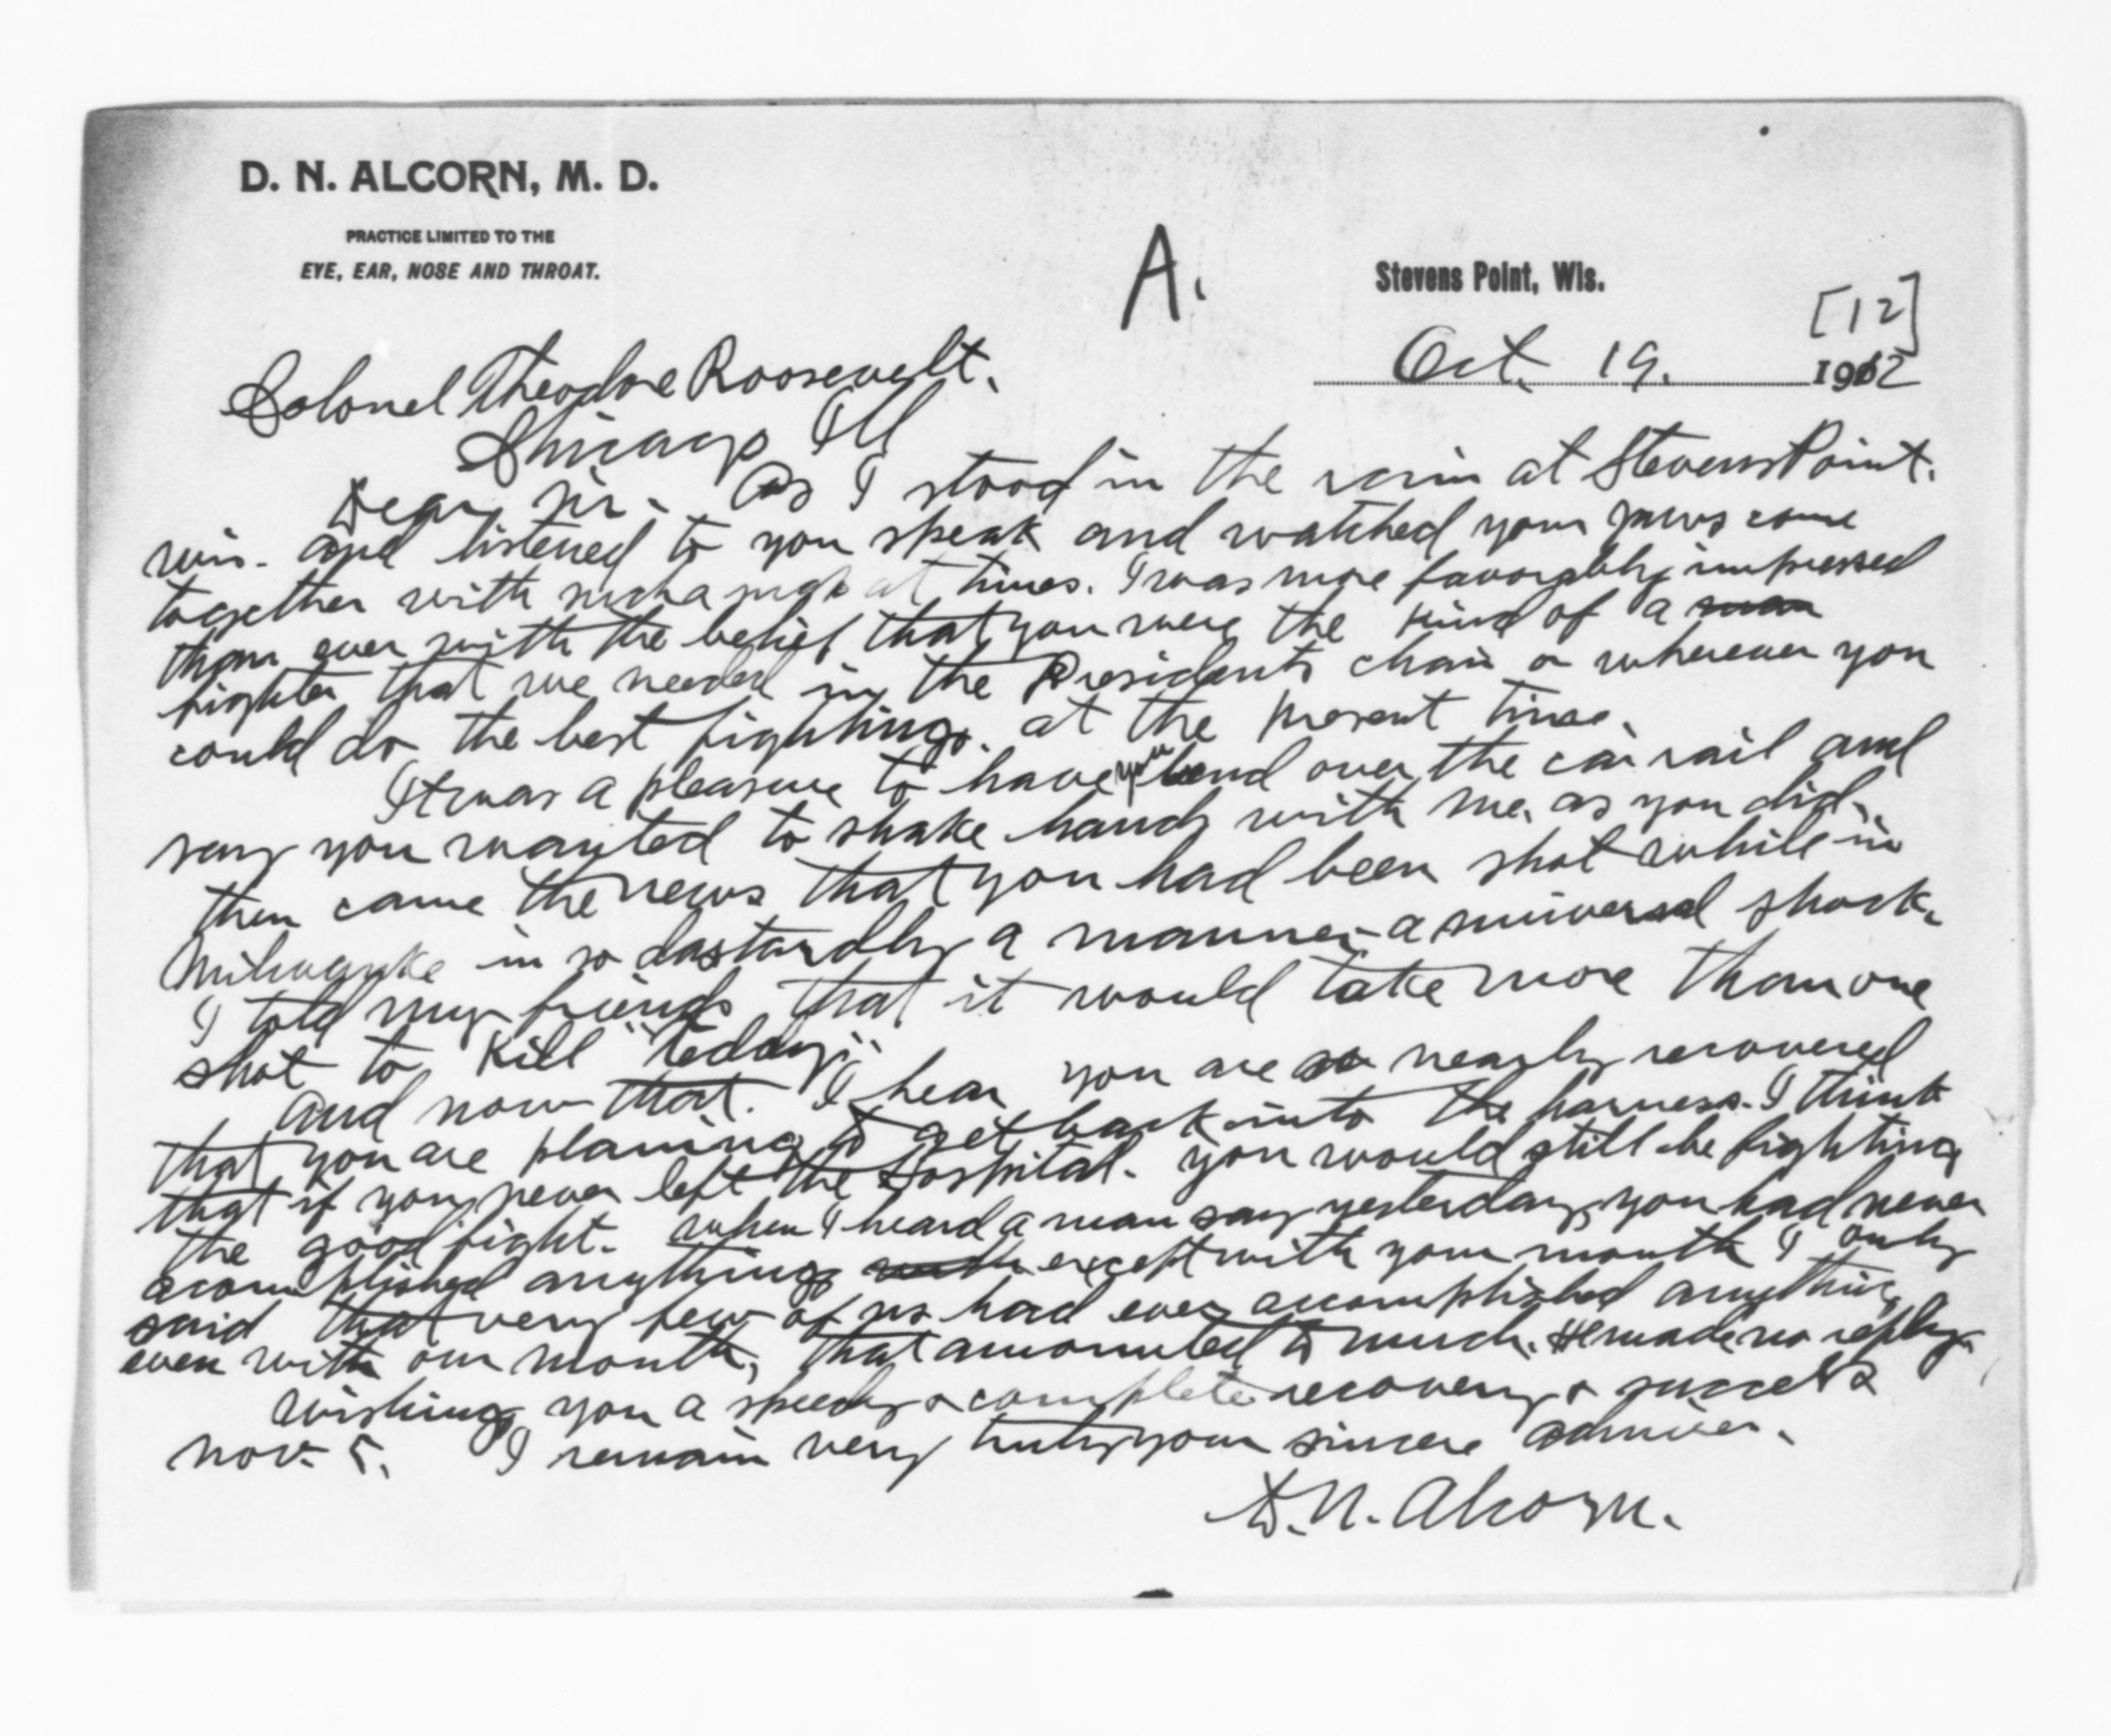 D. N. ALCORN, M. D.
PRACTICE LIMITED TO THE
EYE, EAR, NOSE AND THROAT.
A.
Stevens Point, Wis.
[12]
Oct. 19. 1912
Colonel Theodore Roosevelt.
Chicago Ill
Dear Sir. As I stood in the rain at Stevens Point.
Wis. and listened to you speak and watched your jaws come
together with such a at times. I was more favorably impressed
than ever with the belief that you were the kind of a man
fighter that we needed in the Presidents chair or wherever you
could do the best fighting at the present time.
It was a pleasure to have you bend over the car rail and
say you wanted to shake hands with me, as you did.
then came the news that you had been shot while in
Milwaukee in so dastardly a manner a universal shock.
I told my friends that it would take more than one
shot to kill "Teddy".
And now that I hear you are so nearly recovered
that you are planing to get back into the harness. I think
that if you never left the Hospital. you would still be fighting
the good fight. When I heard a man say yesterday, you had never
acomplished anything with except with your mouth I only
said that very few of us had ever accomplished anything
even with our mouth, that amounted to much. He made no reply.
Wishing you a speedy & complete recovery & success
Nov. 5. I remain very truly your sincere admirer.
D. N. Alcorn.